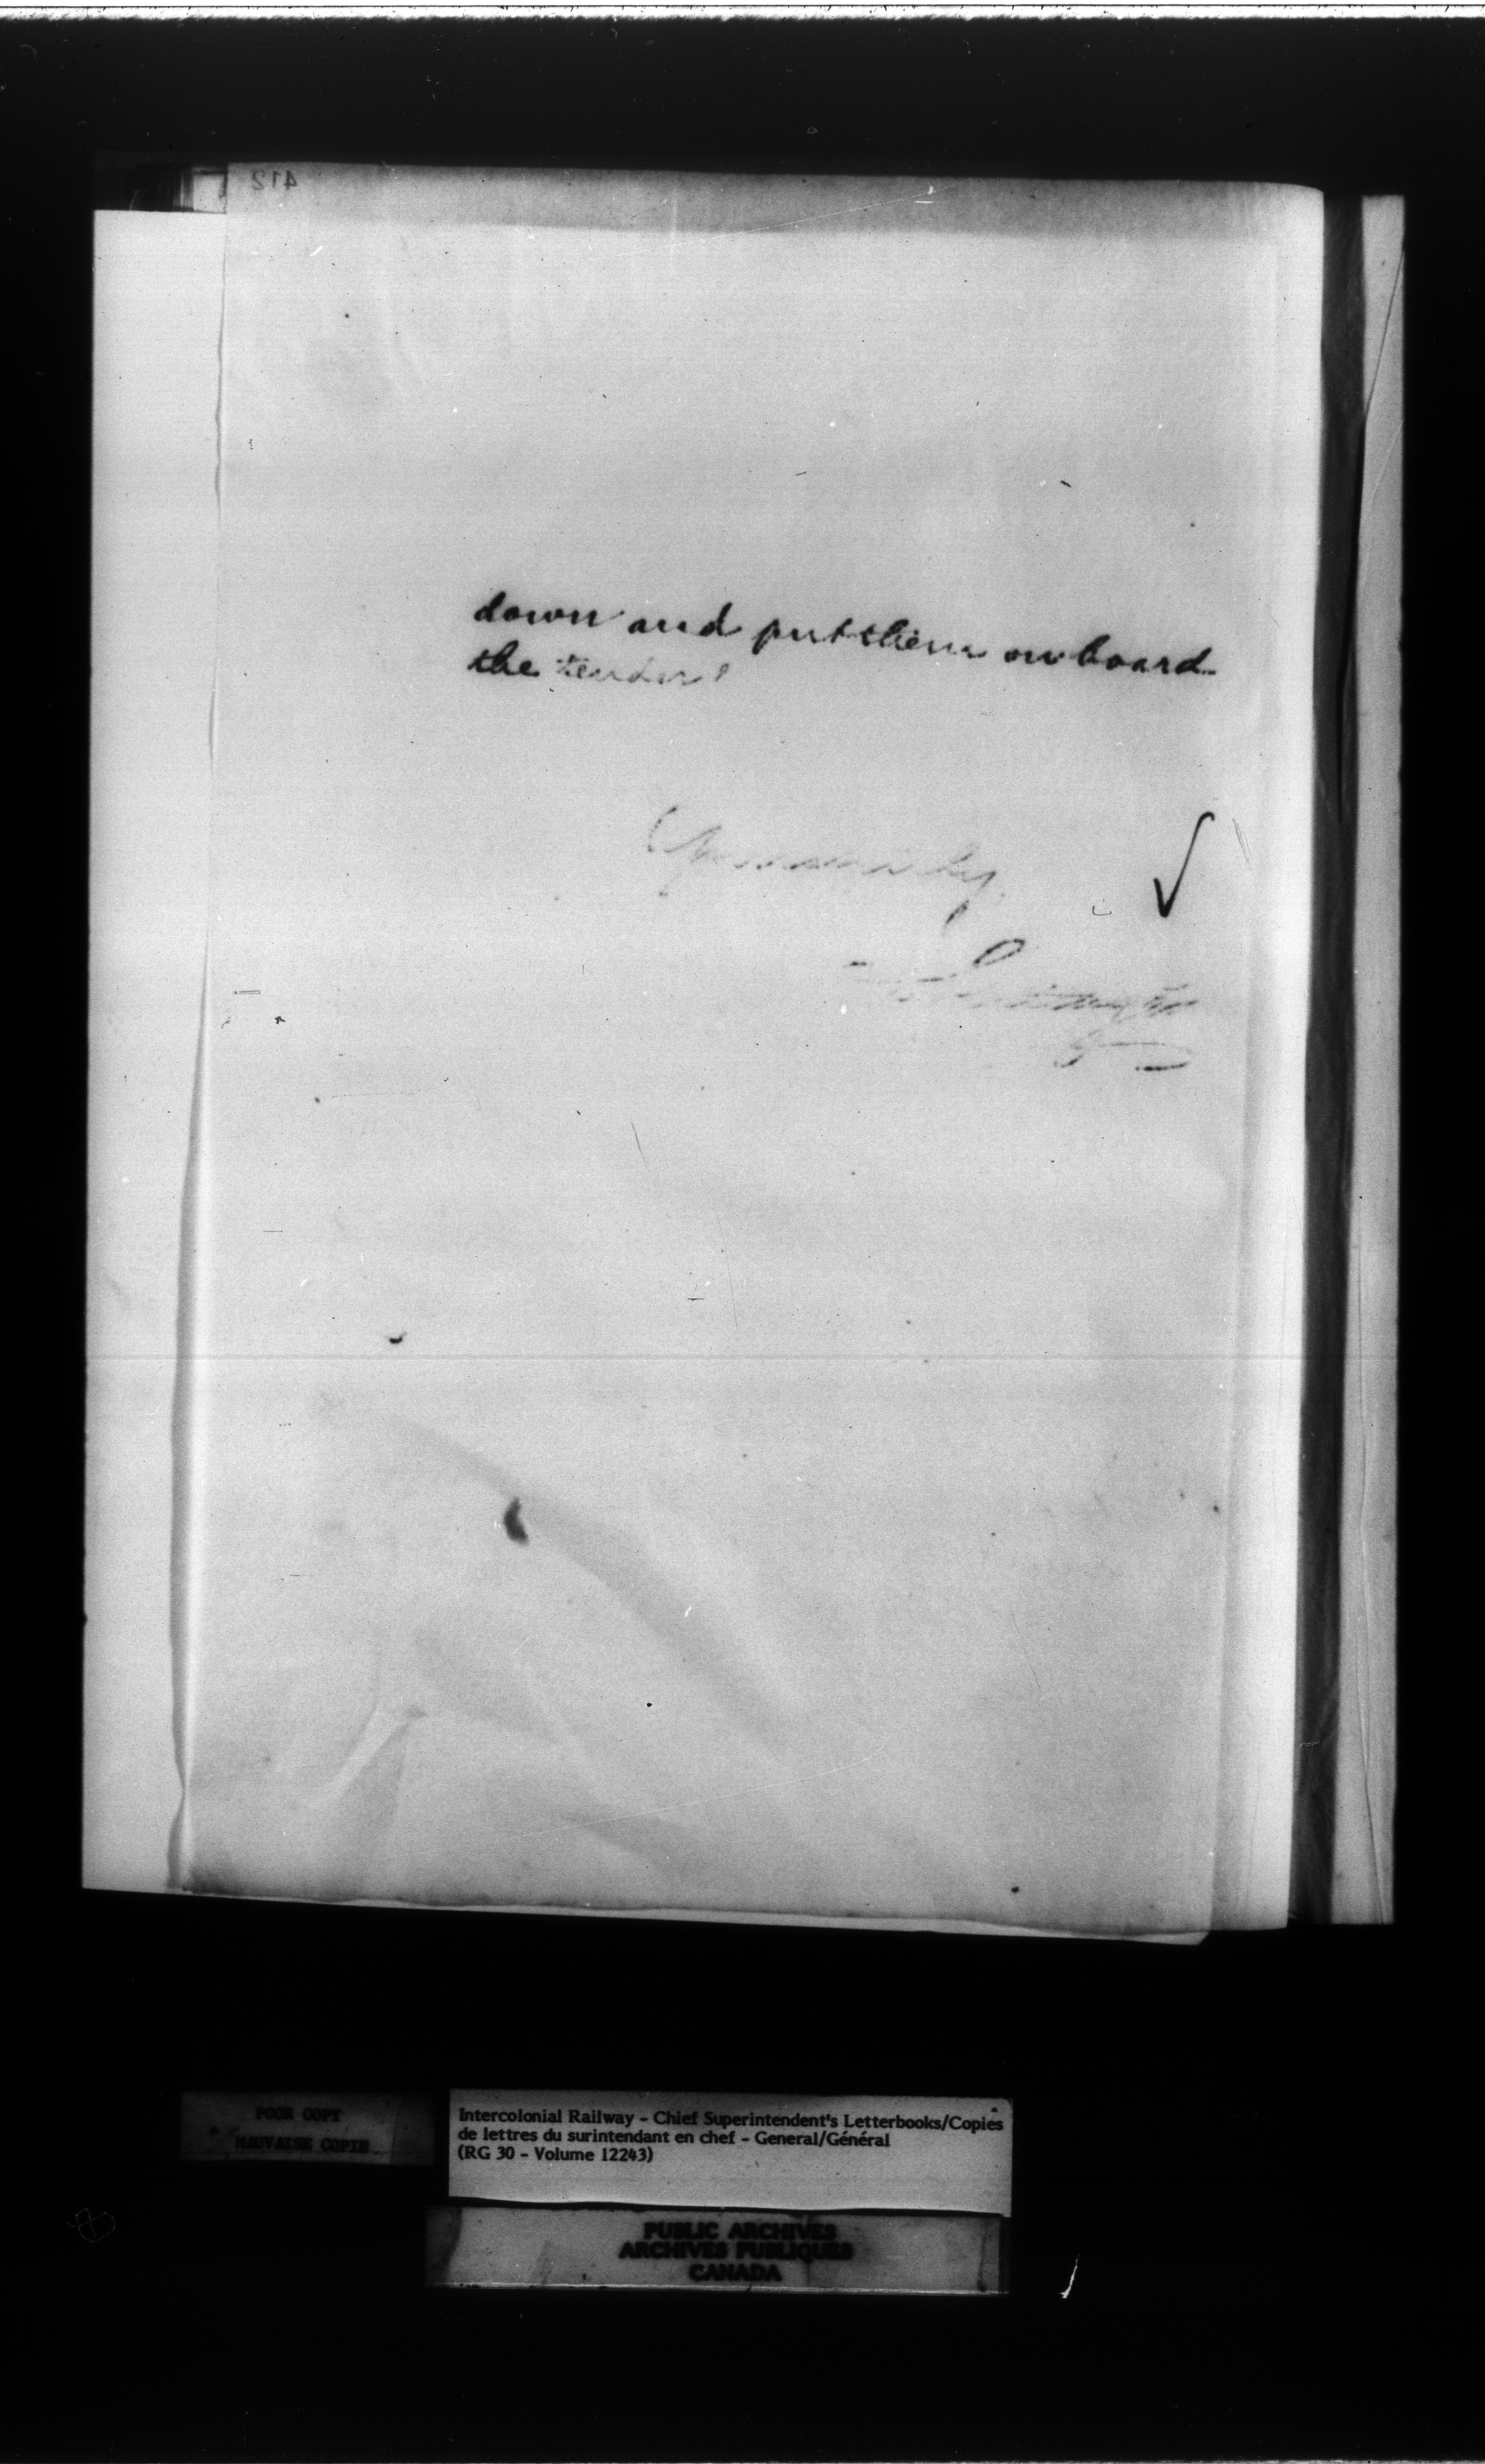 412
down and put them on board
the tender
Yours truly
POOR COPY
MAUVAISE COPIE
Intercolonial Railway - Chief Superintendent's Letterbooks/Copies
de lettres du surintendant en chef - General/Général
(RG 30 - Volume 12243)
PUBLIC ARCHIVES
ARCHIVES PUBLIQUES
CANADA